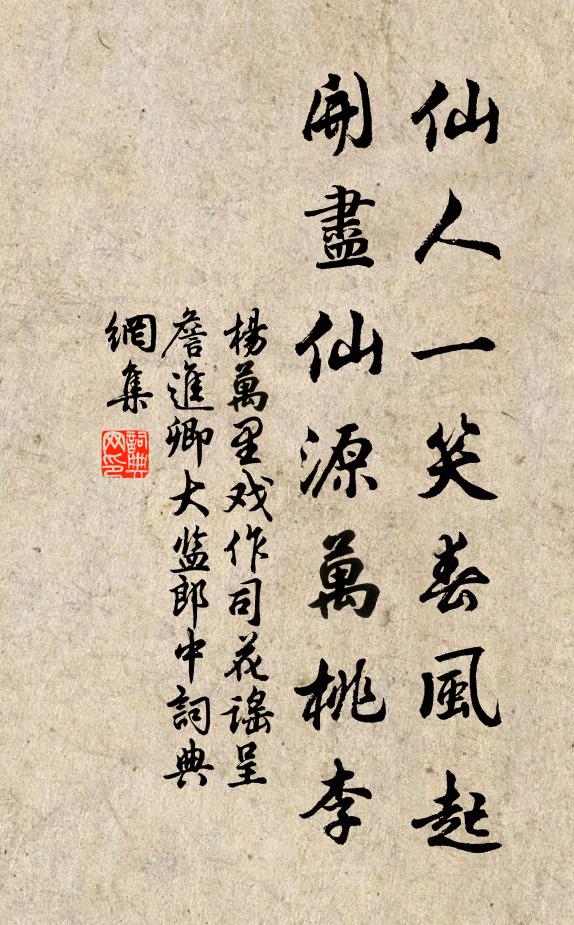 仙人一笑春風起
開盡仙源萬桃李
楊萬里戏作司花謠呈
詹進卿大監郎中詞典
網集
詞典
网印